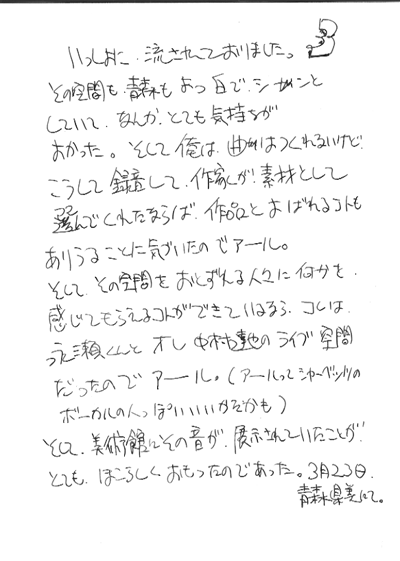 いっしょに、流されておりました。
その空間も、青森もまっ白で、シーンと
していて、なんか、とても気持ちが
よかった。そして俺は、曲はつくれないけど
こうして録音して、作家が素材として
選んでくれたならば、作品とよばれるコトも
ありうることに気づいたのでアール。
そして、その空間をおとずれる人々に何かを
感じてもらえるコトができているなら、コレは
永瀬くんとオレ 中村達也のライブ空間
だったのでアール。(アールってシャーベッツの
ボーカルの人っぽいいいかたかも)
そして、美術館にその音が、展示されていたことが
とても、ほこらしくおもったのであった。3月23日、
青森県美にて。